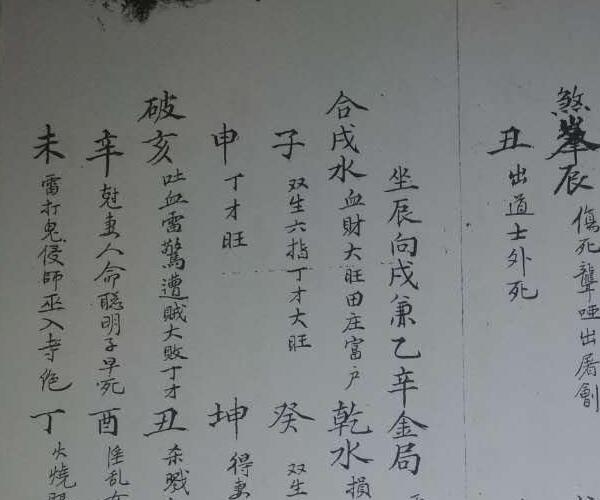 煞峯辰 傷死聾啞出屠劊
丑 出道士外死
坐辰向戌兼乙辛金局
合戌水 血財大旺田庄富户 乾水 損
子 双生六指丁才大旺 癸 双生
申 丁才旺 坤 得妻
破亥 吐血雷驚遭賊大敗丁才 丑 杀戮
辛 尅妻人命聪明子早死 酉 淫乱
未 雷打鬼侵師巫入寺绝 丁 火燒